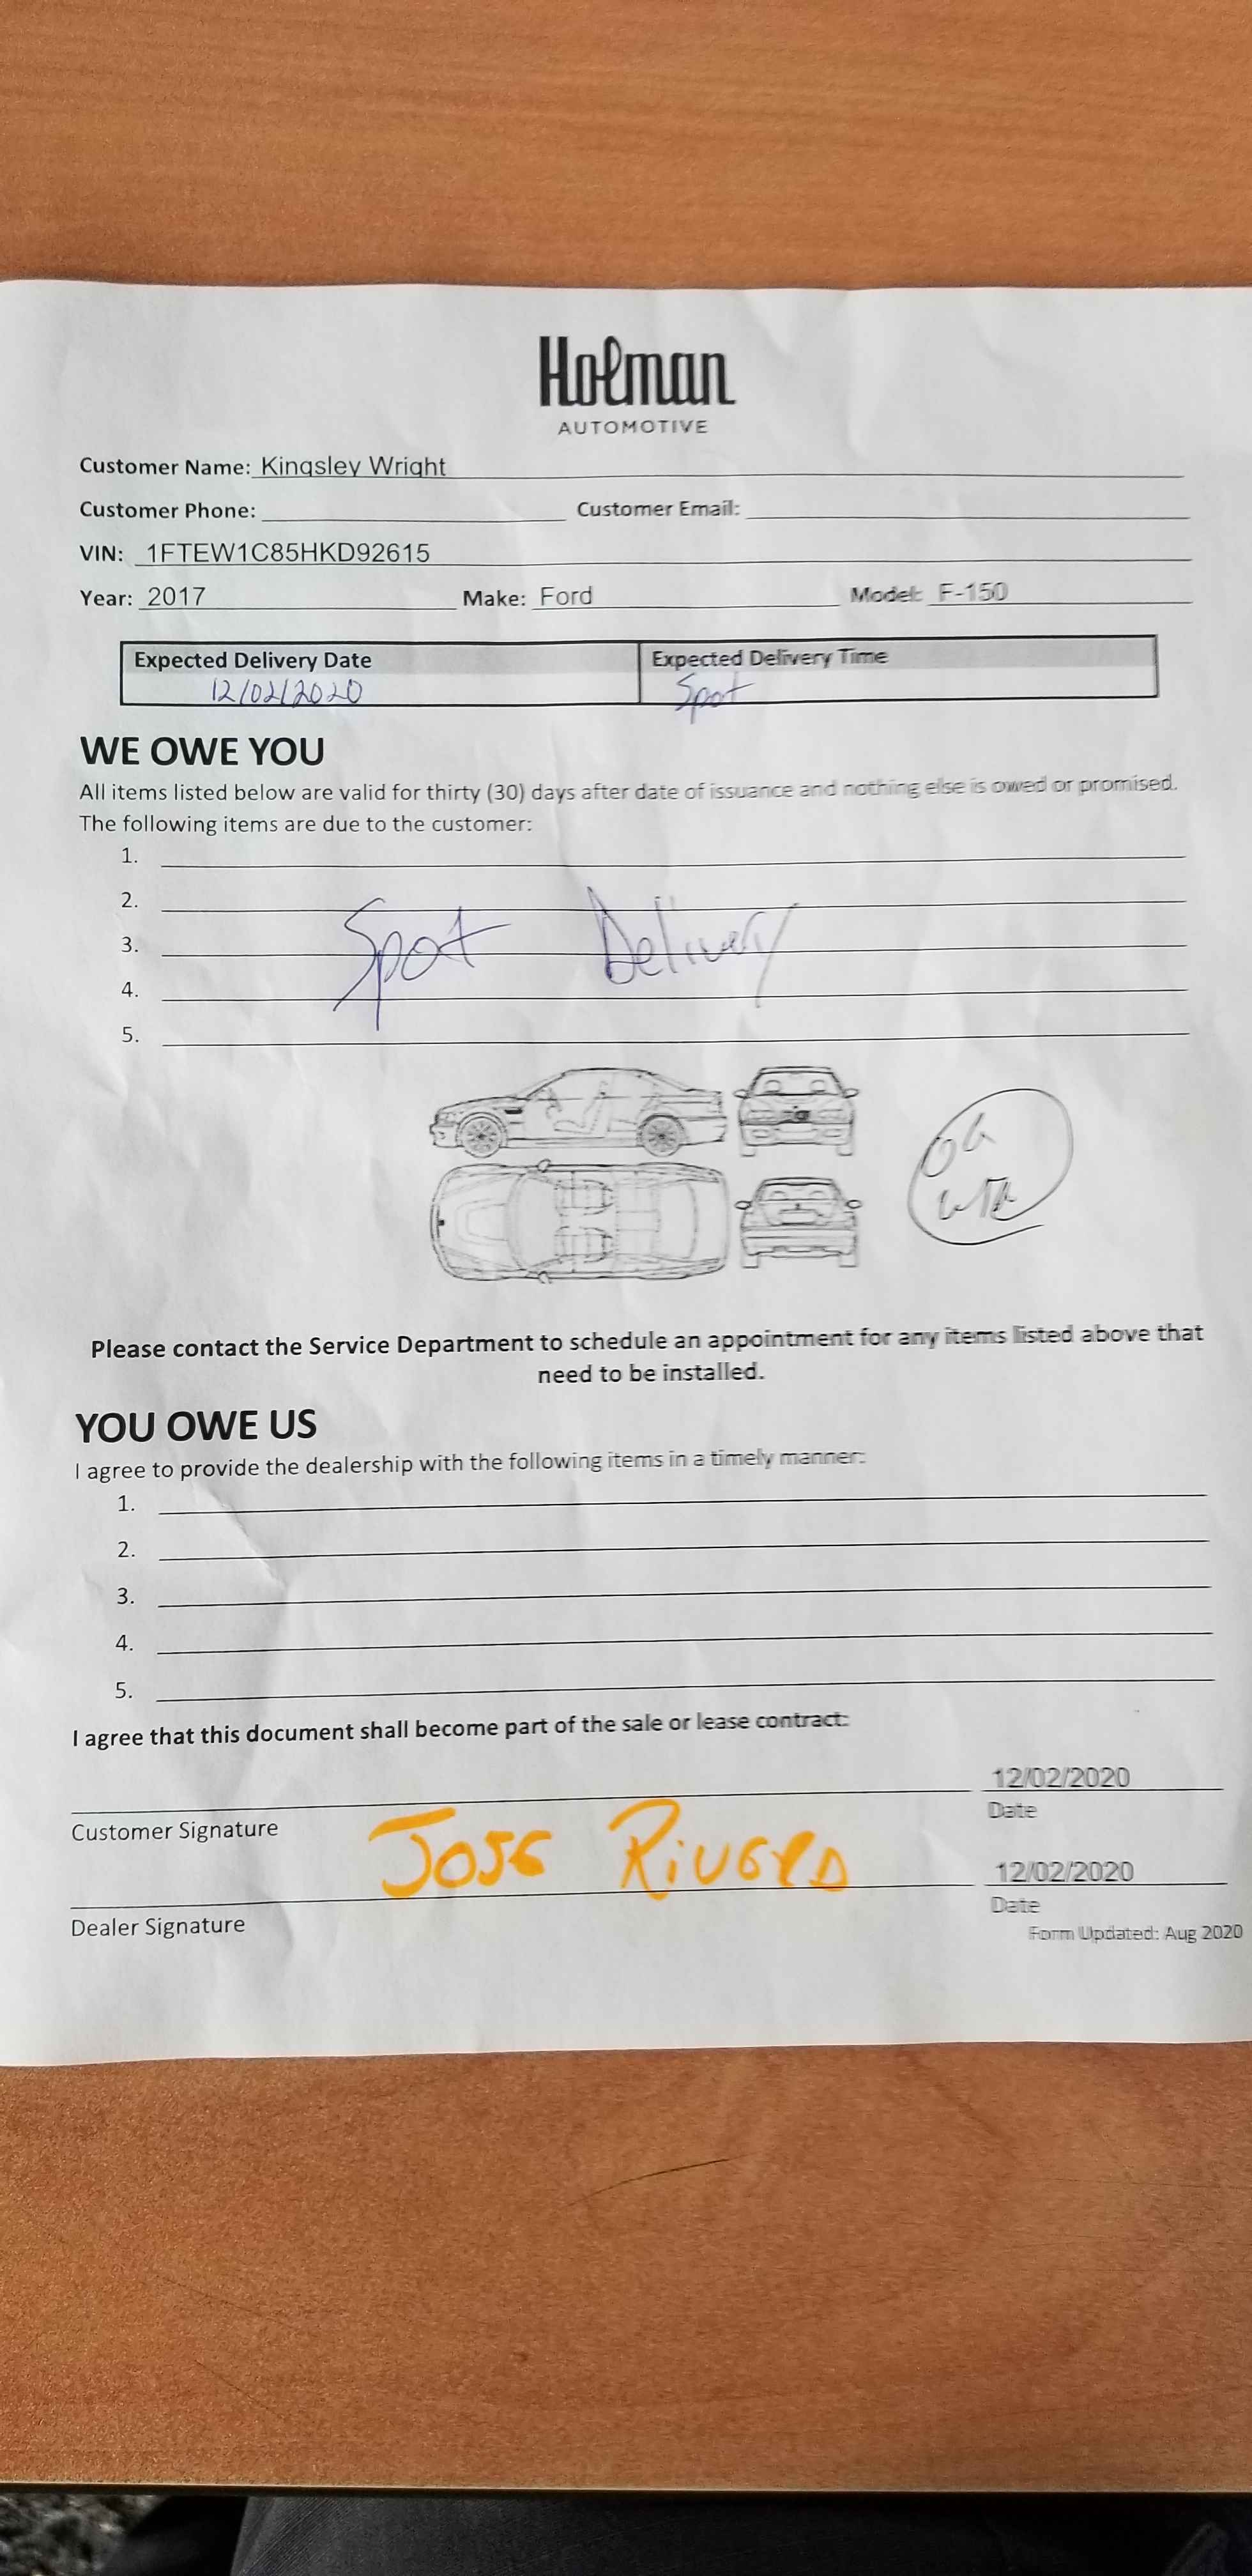 Holman
AUTOMOTIVE
Customer Name: Kingsley Wright
Customer Phone: Customer Email:
VIN: 1FTEW1C85HKD92615
Year: 2017 Make: Ford Model: F-150
Expected Delivery Date Expected Delivery Time
12/02/2020 Spot
WE OWE YOU
All items listed below are valid for thirty (30) days after date of issuance and nothing else is owed or promised.
The following items are due to the customer:
1.
2.
3. Spot Delivery
4.
5.
Please contact the Service Department to schedule an appointment for any items listed above that
need to be installed.
YOU OWE US
I agree to provide the dealership with the following items in a timely manner:
1.
2.
3.
4.
5.
I agree that this document shall become part of the sale or lease contract:
12/02/2020
Customer Signature Date
Jose Rivera 12/02/2020
Dealer Signature Date
Form Updated: Aug 2020